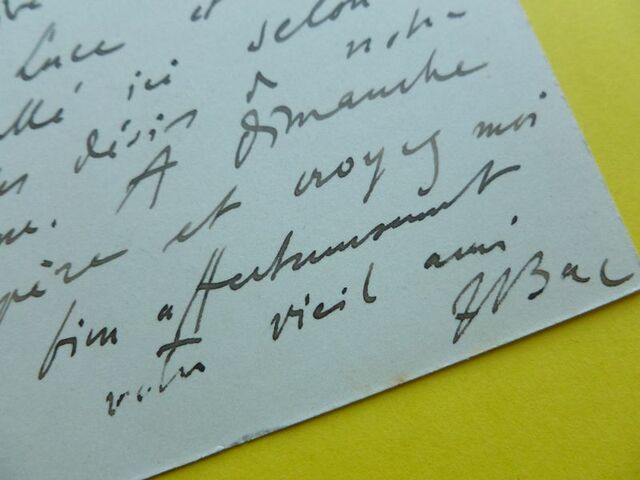 Luce et selon
ici
désirs à notre
A dimanche
et croyez moi
bien affectueusement
votre vieil ami
F Bac